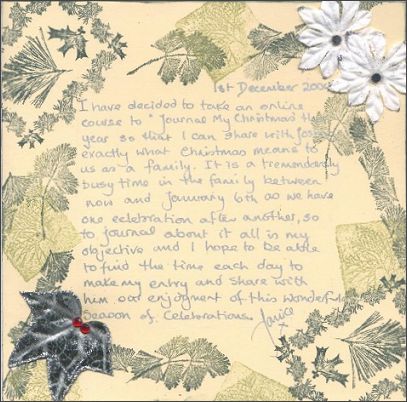 1st December
I have decided to take an online
course to "Journal My Christmas" this
year so that I can share with
exactly what Christmas means to
us as a family. It is a tremendously
busy time in the family between
now and January 6th as we have
one celebration after another, so
to journal about it all is my
objective and I hope to be able
to find the time each day to
make my entry and share with
him our enjoyment of this wonderful
Season of Celebrations. Janice
x